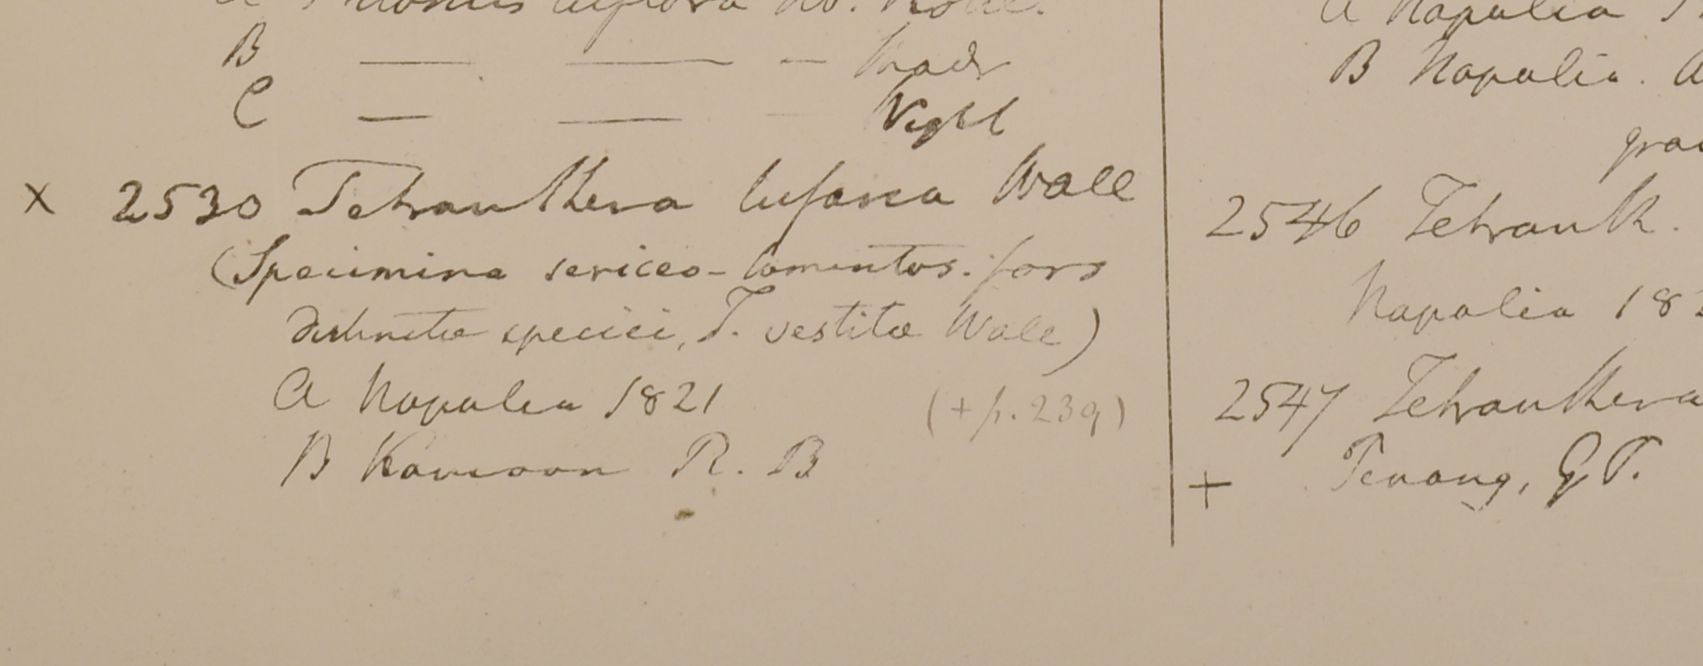 B — — — Madr
C — — — Wight
x 2530 Tetranthera bifaria Wall
(Specimina sericeo-tomentos. fors
distinctæ speciei, T. vestita Wall)
a Napalia 1821 (+p. 239)
B Kamaon R. B
a Napalia
B Napalia.
2546 Tetranth.
Napalia 18
2547 Tetranthera
+ Penang, G.P.